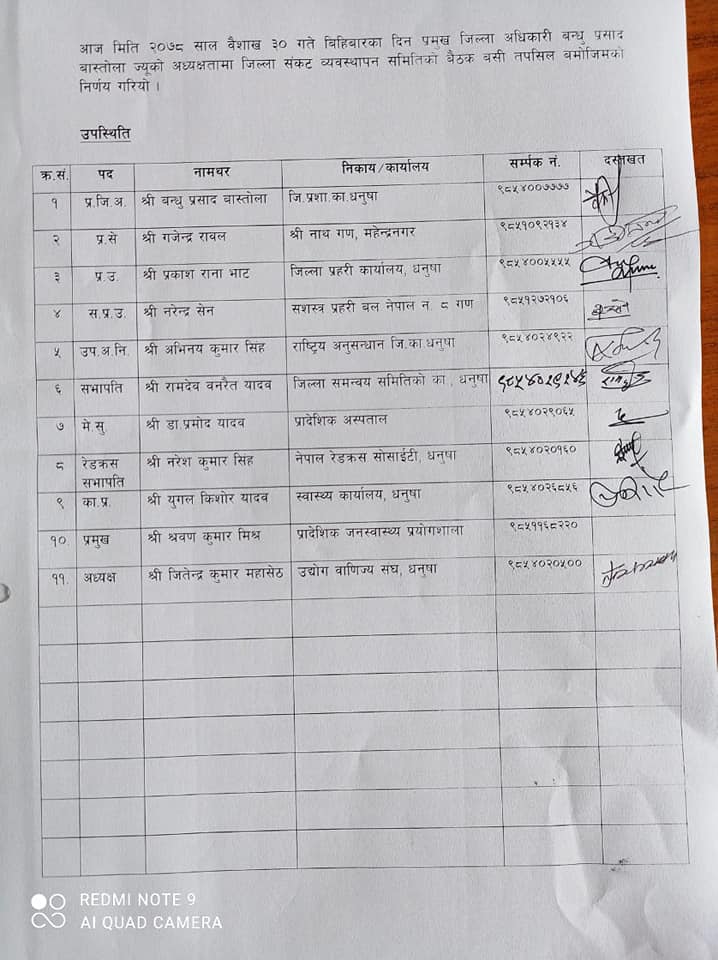 आज मिति २०७८ साल वैशाख ३० गते विहिबारका दिन प्रमुख जिल्ला अधिकारी बन्धु प्रसाद
बास्तोला ज्यूको अध्यक्षतामा जिल्ला संकट व्यवस्थापन समितिको बैठक बसी तपसिल बमोजिमको
निर्णय गरियो ।
उपस्थिति
क्र.सं. पद नामथर निकाय/कार्यालय सर्म्पक नं. दस्तखत
१ प्र.जि.अ. श्री बन्धु प्रसाद बास्तोला जि.प्रशा.का.धनुषा ९८५४००७७७७
२ प्र.से श्री गजेन्द्र रावल श्री नाथ गण, महेन्द्रनगर ९८५१०९२१३४
३ प्र.उ. श्री प्रकाश राना भाट जिल्ला प्रहरी कार्यालय, धनुषा ९८५४००५५५५
४ स.प्र.उ. श्री नरेन्द्र सेन सशस्त्र प्रहरी बल नेपाल न. ८ गण ९८५१२७२१०६
५ उप.अ.नि. श्री अभिनय कुमार सिंह राष्ट्रिय अनुसन्धान जि.का.धनुषा ९८५४०२४९२२
६ सभापति श्री रामदेव वनरैत यादव जिल्ला समन्वय समितिको का , धनुषा
७ मे.सु. श्री डा.प्रमोद यादव प्रादेशिक अस्पताल ९८५४०२९०६५
८ रेडक्रस श्री नरेश कुमार सिंह नेपाल रेडक्रस सोसाईटी, धनुषा ९८५४०२०१६०
सभापति
९ का.प्र. श्री युगल किशोर यादव स्वास्थ्य कार्यालय, धनुषा ९८५४०२६८५६
१०. प्रमुख श्री श्रवण कुमार मिश्र प्रादेशिक जनस्वास्थ्य प्रयोगशाला ९८५११६८२२०
११. अध्यक्ष श्री जितेन्द्र कुमार महासेठ उद्योग वाणिज्य संघ, धनुषा ९८५४०२०५००
REDMI NOTE 9
AI QUAD CAMERA